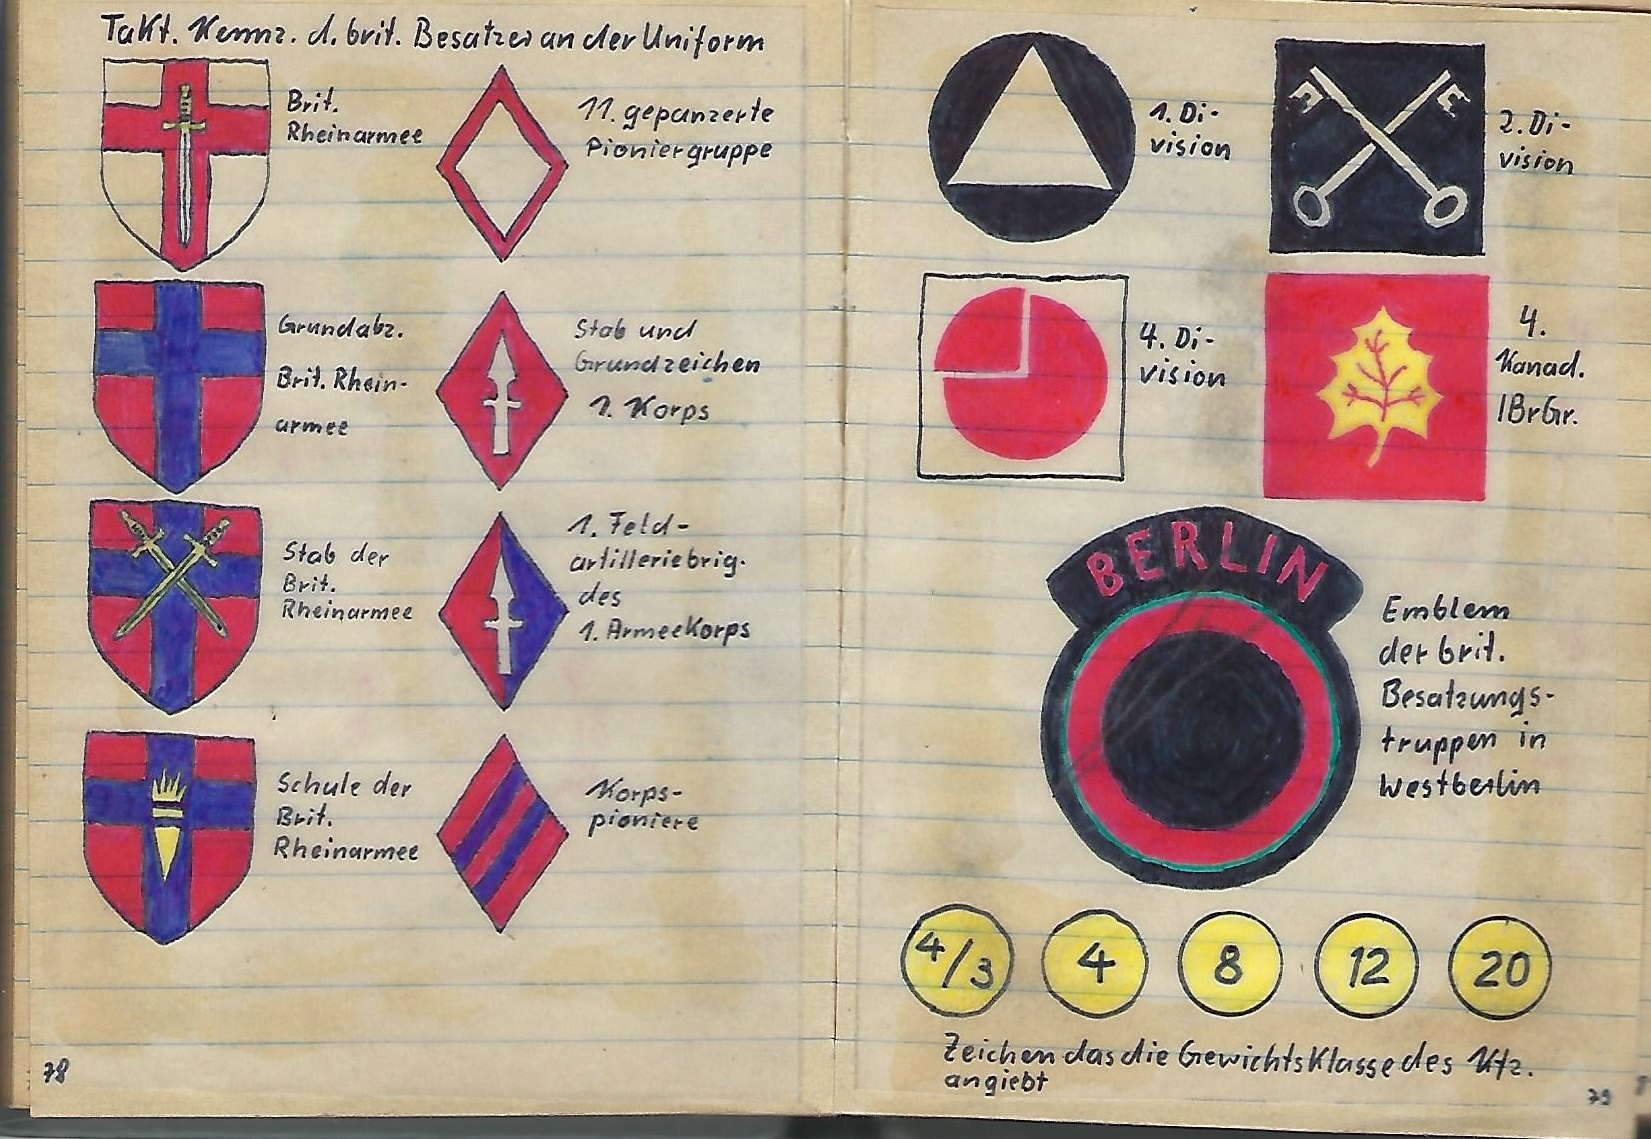 Takt. Kennz. d. brit. Besatzer an der Uniform
Brit.
Rheinarmee
11. gepanzerte
Pioniergruppe
Grundabz.
Brit. Rhein-
armee
Stab und
Grundzeichen
1. Korps
Stab der
Brit.
Rheinarmee
1. Feld-
artilleriebrig.
des
1. Armeekorps
Schule der
Brit.
Rheinarmee
Korps-
pioniere
78
1. Di-
vision
2. Di-
vision
4. Di-
vision
4.
Kanad.
IBrGr.
BERLIN
Emblem
der brit.
Besatzungs-
truppen in
Westberlin
4/3 4 8 12 20
Zeichen das die Gewichtsklasse des Kfz.
angiebt
79